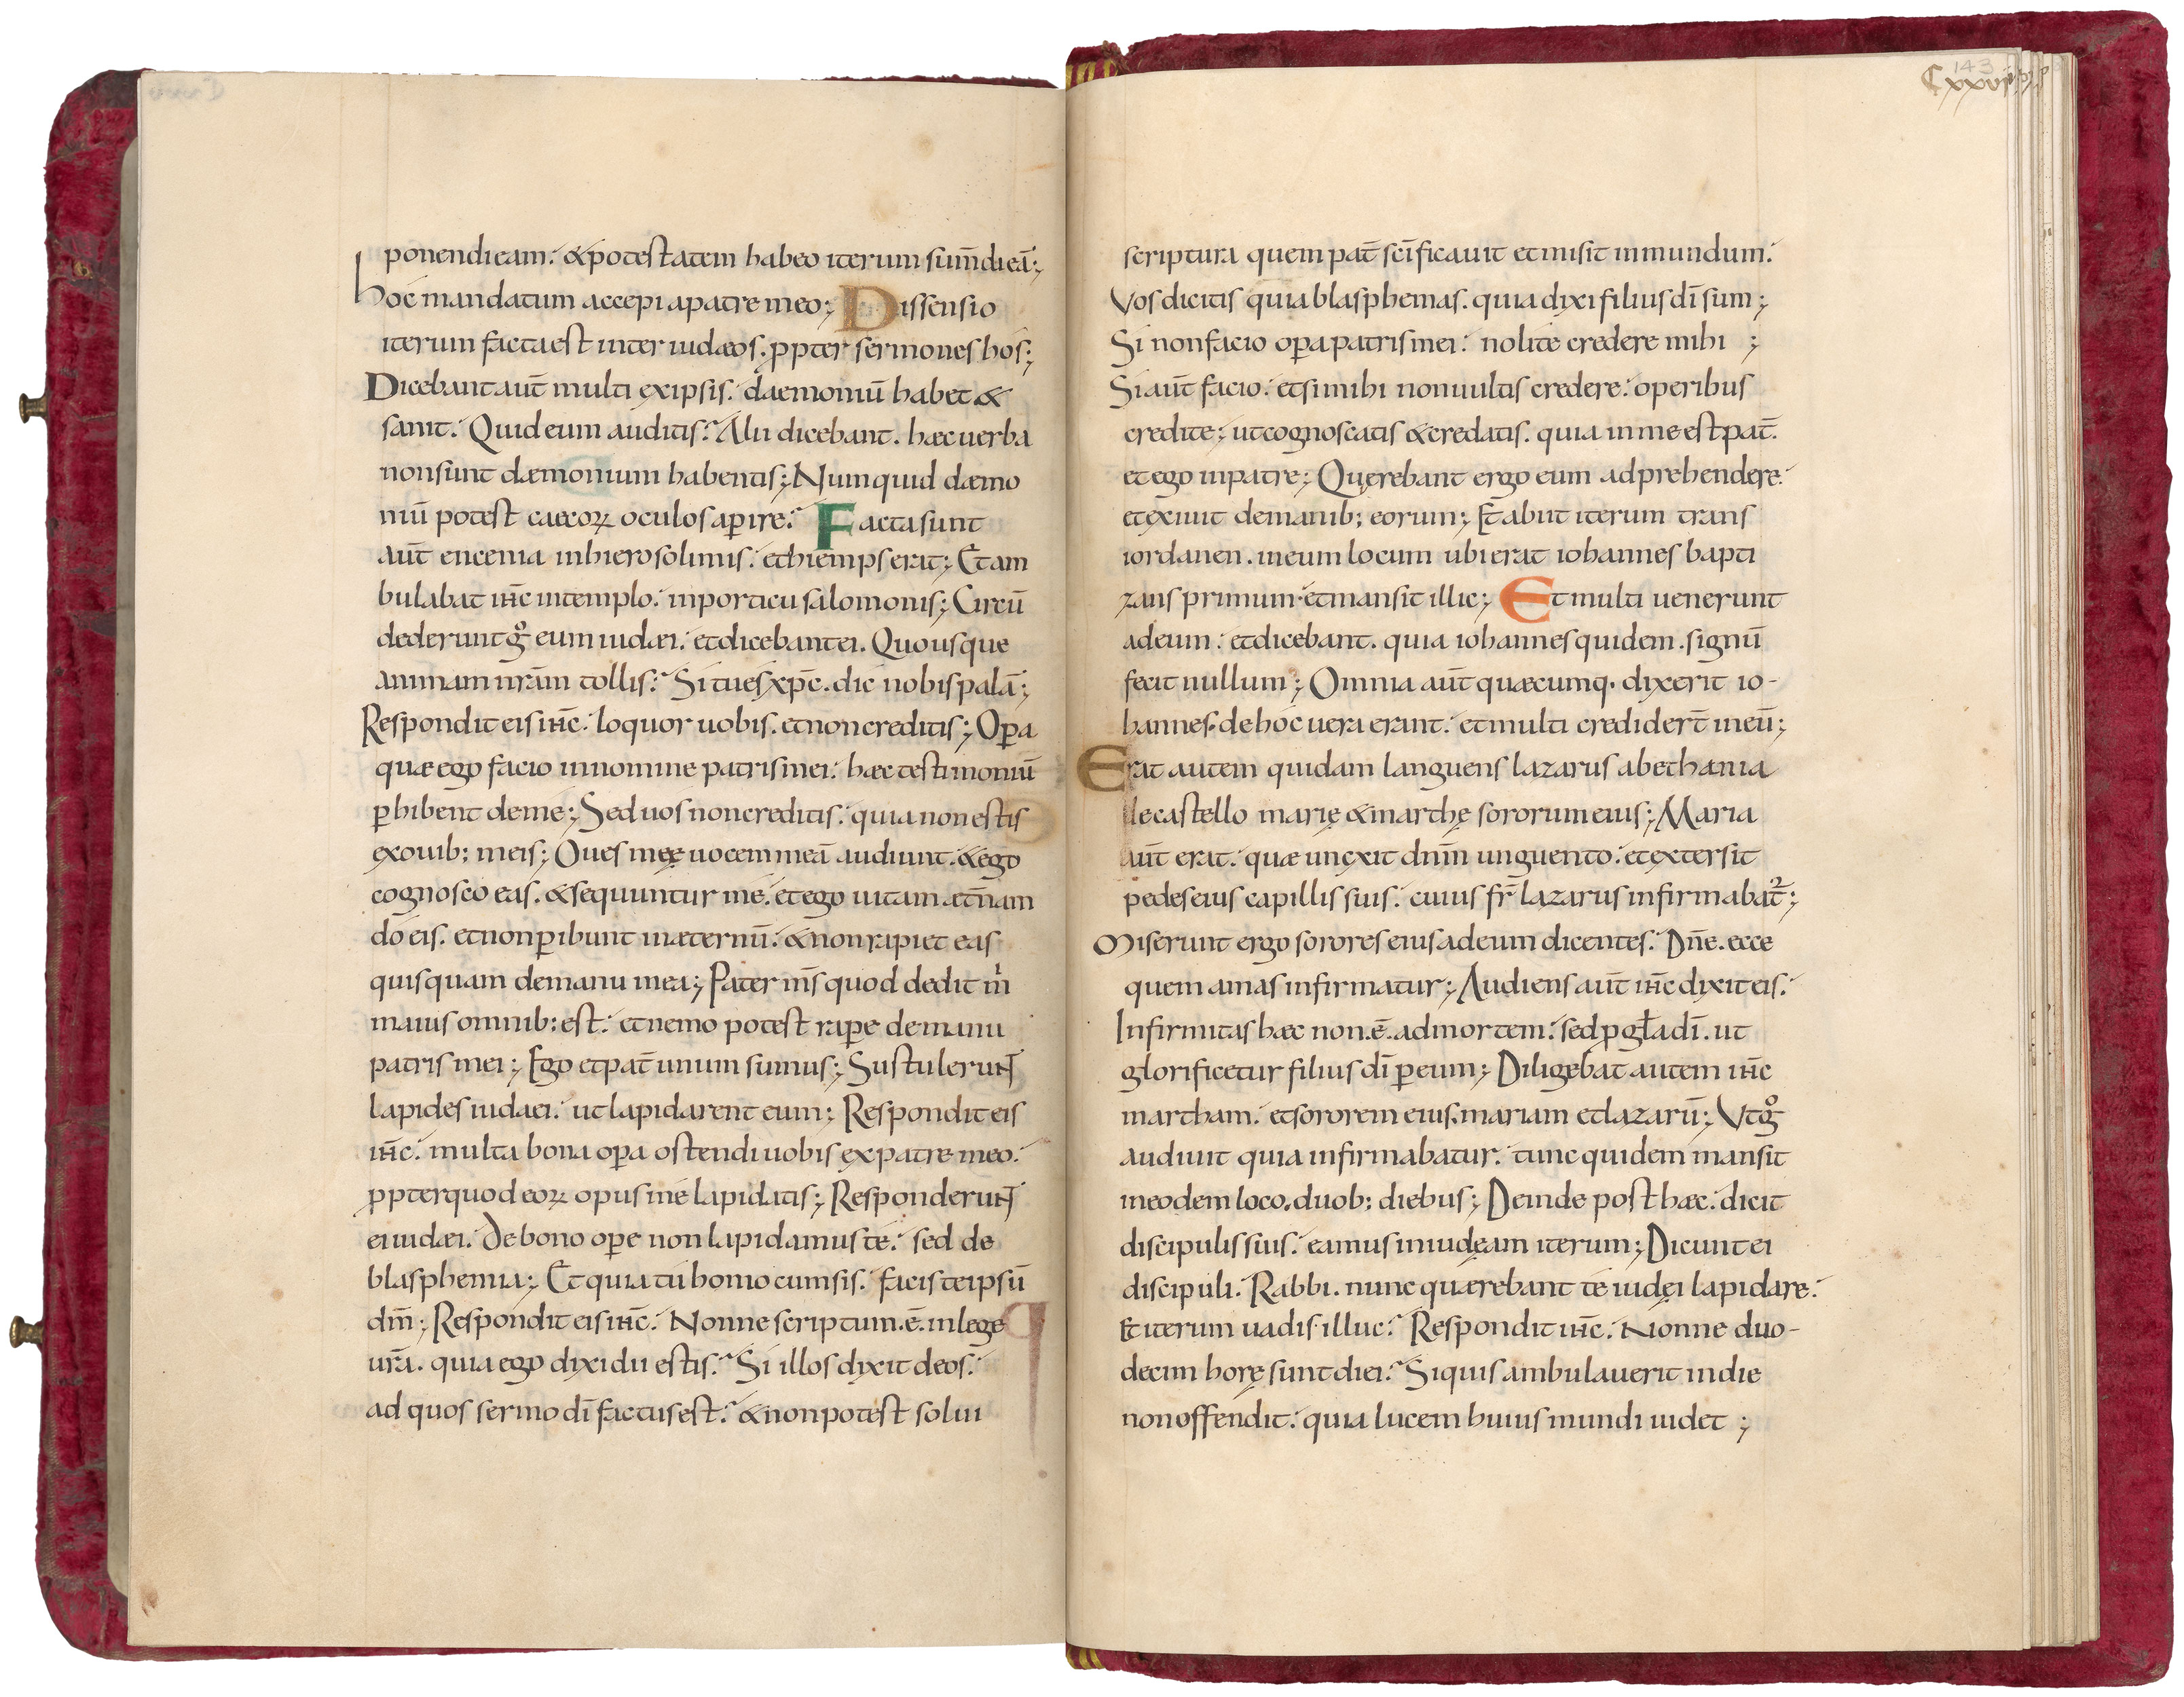 ponendi eam. & potestatem habeo iterum sum̄di eā;
hoc mandatum accepi a patre meo; Dissensio
iterum facta est inter iudæos. ꝓpter sermones hos;
Dicebant aut̄ multi ex ipsis. daemoniū habet &
sanit. Quid eum auditis? Alii dicebant. hæc uerba
non sunt dæmonium habentis; Numquid dæmo
niū potest caecoꝝ oculos aꝑire? Facta sunt
aut̄ encenia in hierosolimis. et hiemps erat; Et am
bulabat ih̄c in templo. in porticu salomonis; Circū
dederunt gͦ eum iudæi. et dicebant ei. Quousque
animam nr̄am tollis? Si tu es xp̄c. dic nobis palā;
Respondit eis ih̄c. loquor uobis. et non creditis; Oꝑa
quæ ego facio in nomine patris mei. hæc testimoniū
ꝑhibent de me; Sed uos non creditis. quia non estis
ex ouib; meis; Oues meę uocem meā audiunt. & ego
cognosco eas. & sequuntur me. et ego uitam æt̄nam
do eis. et non ꝑibunt in æternū. & non rapiet eas
quisquam de manu mea; Pater m̄s quod dedit mͥ
maius omnib; est. et nemo potest raꝑe de manu
patris mei; Ego et pat̄ unum sumus; Sustulerunt
lapides iudaei. ut lapidarent eum; Respondit eis
ih̄c. multa bona oꝑa ostendi uobis ex patre meo.
ꝓpter quod eoꝝ opus me lapidatis; Responderunt
ei iudæi. De bono oꝑe non lapidamus te. sed de
blasphemia; Et quia tu homo cum sis. facis te ipsū
dm̄; Respondit eis ih̄c. Nonne scriptum .ē. in lege
ur̄a. quia ego dixi dii estis? Si illos dixit deos.
ad quos sermo dī factus est. & non potest solui
143
Cxxvij
scriptura quem pat̄ sc̄ificauit et misit in mundum.
Vos dicitis quia blasphemas. quia dixi filius dī sum;
Si non facio oꝑa patris mei. nolite credere mihi ;
Si aut̄ facio. et si mihi non uultis credere. operibus
credite; ut cognoscatis & credatis. quia in me est pat̄.
et ego in patre; Quęrebant ergo eum adprehendere.
et exiuit de manib; eorum; Et abiit iterum trans
iordanen. in eum locum ubi erat iohannes bapti
zans primum. et mansit illic; Et multi uenerunt
ad eum. et dicebant. quia iohannes quidem. signū
fecit nullum; Omnia aut̄ quæcumq. dixerit io-
hannes. de hoc uera erant. et multi credider̄t in eū;
Erat autem quidam languens lazarus a bethania
de castello marię & marthę sororum eius; Maria
aut̄ erat. quæ unxit dn̄m unguento. et extersit
pedes eius capillis suis. cuius fr̄ lazarus infirmabat᷑;
Miserunt ergo sorores eius ad eum dicentes. Dn̄e. ecce
quem amas infirmatur; Audiens aut̄ ih̄c dixit eis.
Infirmitas hæc non .ē. ad mortem. sed ꝓ gɫa dī. ut
glorificetur filius dī ꝑ eum; Diligebat autem ih̄c
martham. et sororem eius. mariam et lazarū; Vt gͦ
audiuit quia infirmabatur. tunc quidem mansit
in eodem loco. duob; diebus; Deinde post hæc. dicit
discipulis suis. eamus in iudęam iterum; Dicunt ei
discipuli. Rabbi. nunc quærebant te iudęi lapidare.
Et iterum uadis illuc? Respondit ih̄c. Nonne duo-
decim horę sunt diei? Si quis ambulauerit in die
non offendit. quia lucem huius mundi uidet ;